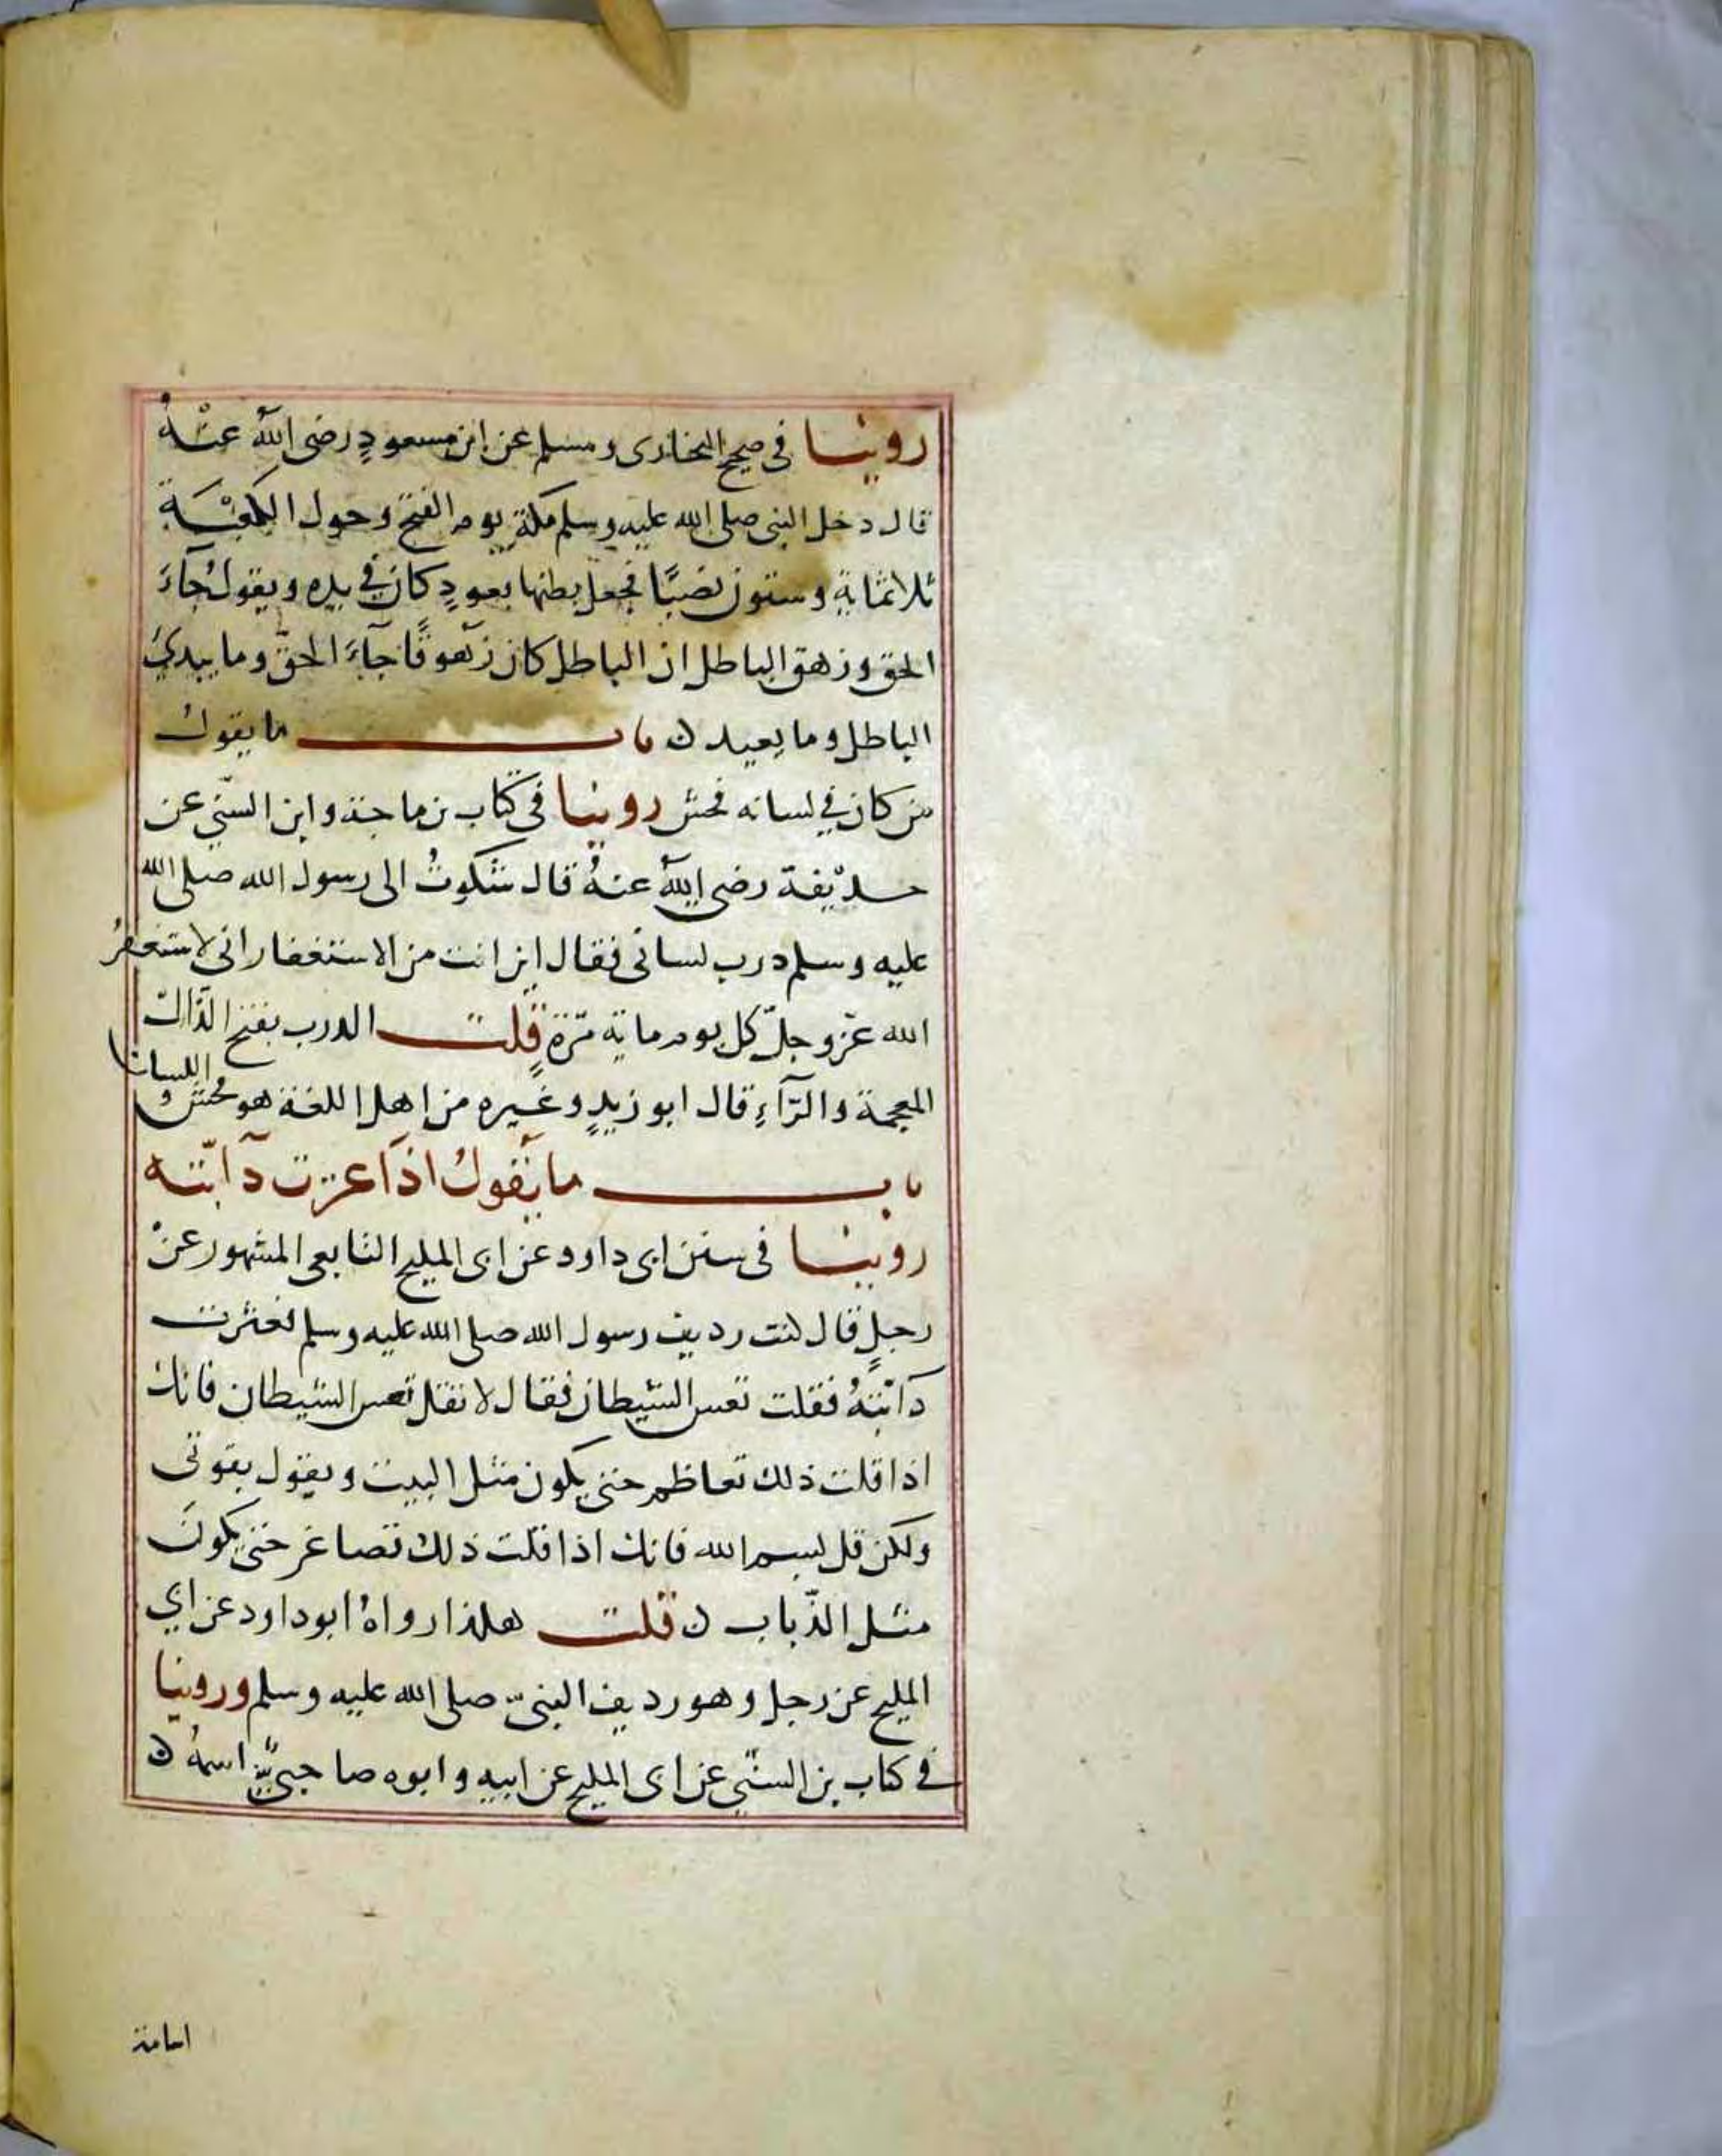 روينا في صحيح البخاري ومسلم عن ابن مسعودٍ رضي الله عنْهُ
قال دخل النبي صلى الله عليه وسلم مكة يوم الفتح وحول الكعْبَة
ثلاثمايةٍ وستون نصبًا فجعل يطنها بعودٍ كان في يده ويقولُ جآءَ
الحق وزهق الباطل ان الباطل كان زهوقًا جآءَ الحقّ وما يبديُ
الباطل وما يعيد ن باب ما يقولُ
من كان في لسانه فحش روينا في كتاب بن ماجة وابن السنّي عن
حذيْفة رضي الله عنهُ قال شكوتُ الى رسول الله صلى الله
عليه وسلم درب لساني فقال اين انت من الاستغفار اني لاستغفرُ
الله عزّوجلّ كل يوم ماية مرّةٍ قلت الدرب بفتح الذّال
المعجمة والرّآءِ قال ابو زيدٍ وغيره من اهل اللغة هو فحش اللسان
باب ما يقولُ اذا عثرت دآبّته
روينا في سنن ابي داود عن ابي المليح التابعي المشهور عنْ
رجلٍ قال كنت رديف رسول الله صلى الله عليه وسلم فعثرت
دآبّتهُ فقلت تعس الشيطان فقال لا تقل تعس الشيطان فانك
اذا قلت ذلك تعاظم حتى يكون مثل البيت ويقول بقوتي
ولكن قل بسم الله فانك اذا قلت ذلك تصاغر حتى يكونَ
مثل الذّباب ن قلت هكذا رواهُ ابو داود عن ابي
المليح عن رجل وهو رديف النبيّ صلى الله عليه وسلم وروينا
في كتاب بن السنّي عن ابي المليح عن ابيه وابوه صاحبيٌّ اسمهُ ن
اسامة